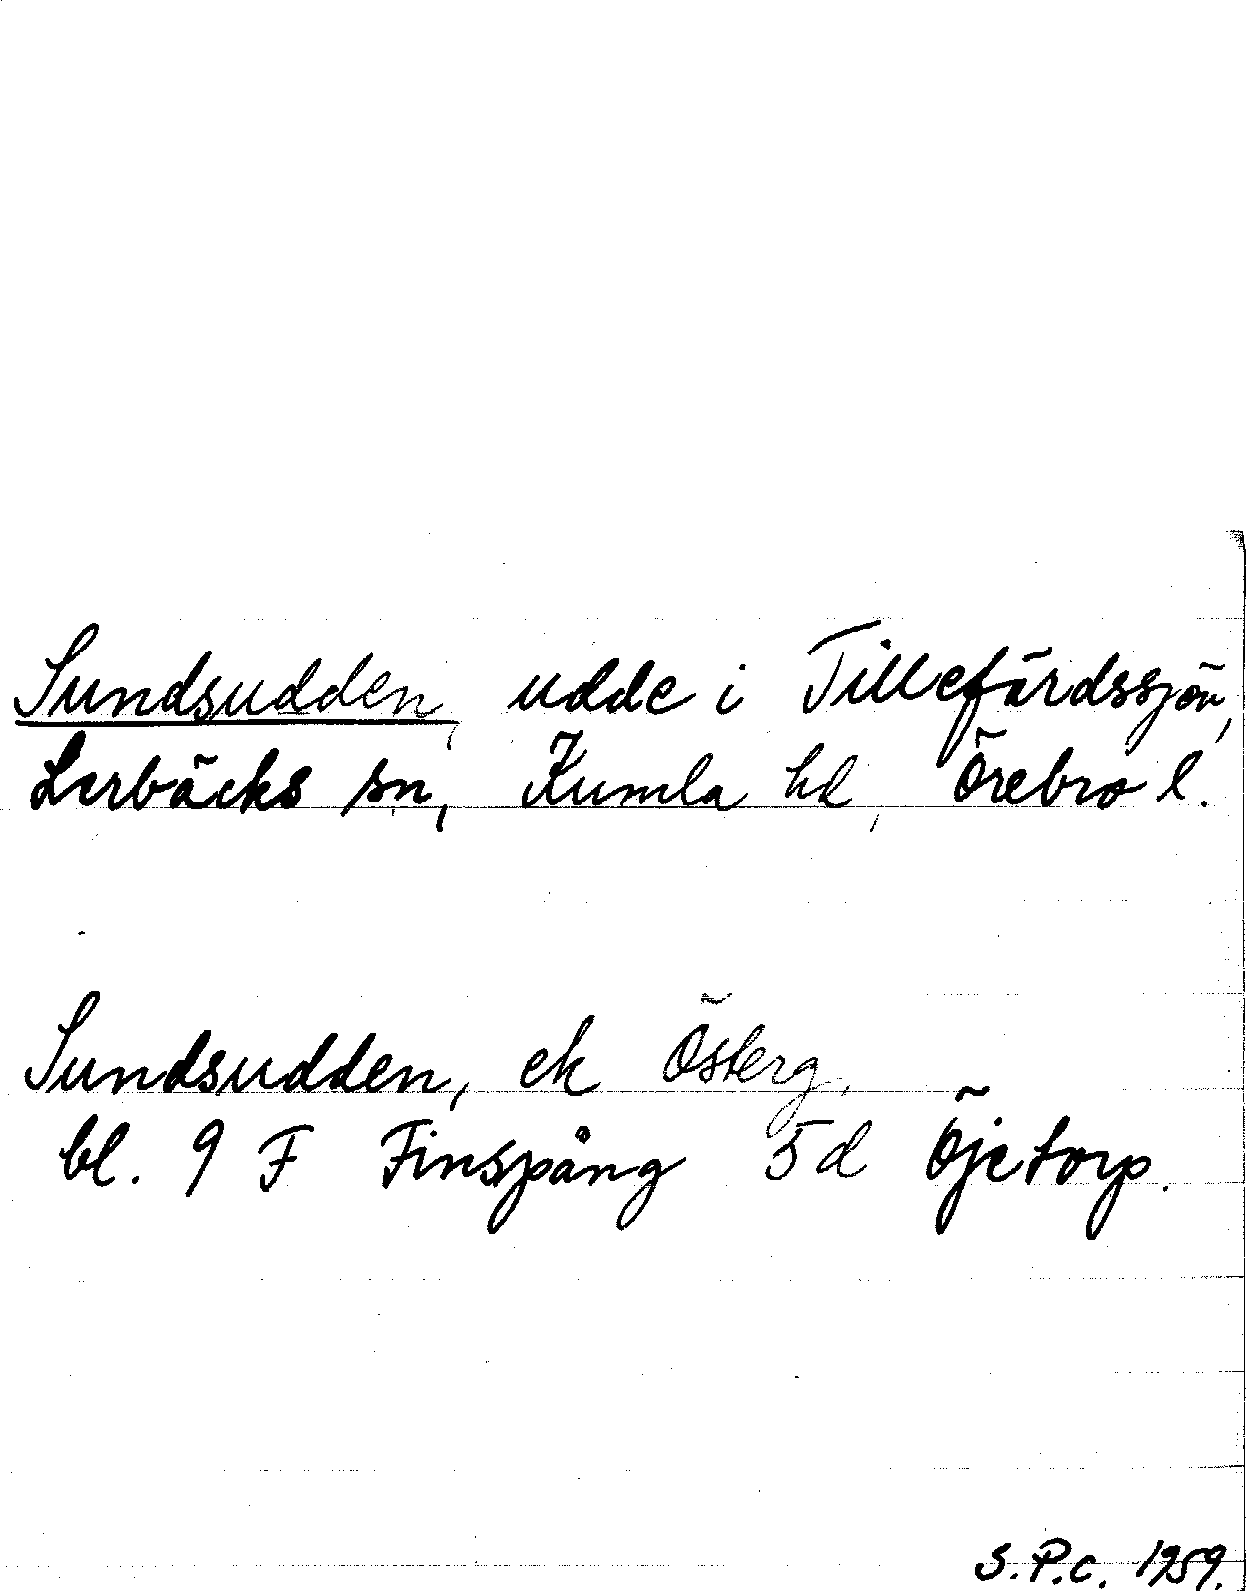 Sundsudden, udde i Tillefärdssjön,
Lerbäcks sn, Kumla hd, Örebro l.
Sundsudden, ek Österg.
bl. 9 F Finspång 5d Öjetorp.
S.P.C. 1959.